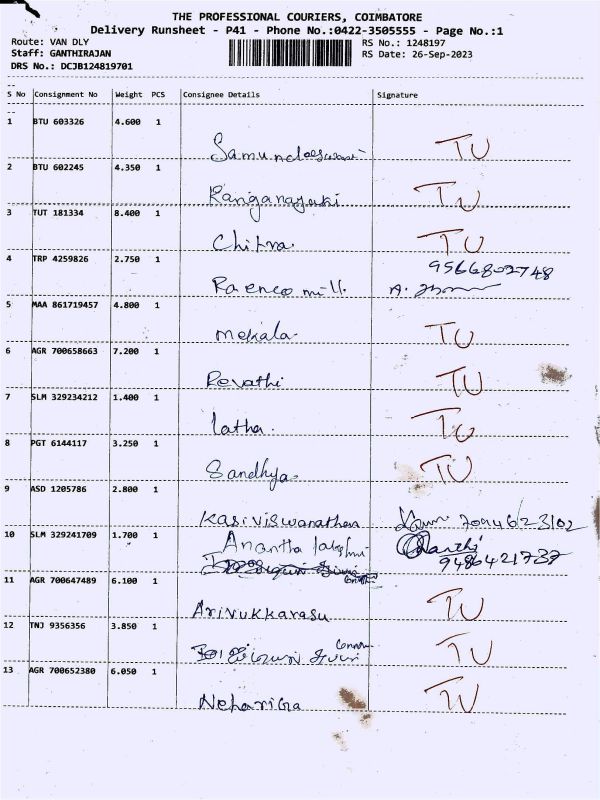 THE PROFESSIONAL COURIERS, COIMBATORE
Delivery Runsheet - P41 - Phone No.:0422-3505555 - Page No.:1
Route: VAN DLY
Staff: GANTHIRAJAN
DRS No.: DCJB124819701
RS No.: 1248197
RS Date: 26-Sep-2023
S No Consignment No Weight PCS Consignee Details Signature
1 BTU 603326 4.600 1
TU
2 BTU 602245 4.350 1
Ranganayaki TU
3 TUT 181334 8.400 1
Chitra. TU
4 TRP 4259826 2.750 1
9566802748
mill. A.
5 MAA 861719457 4.800 1
Mekala TU
6 AGR 700658663 7.200 1
Revathi TU
7 SLM 329234212 1.400 1
latha. TU
8 PGT 6144117 3.250 1
Sandhya TU
9 ASD 1205786 2.800 1
Kasiviswanathan
10 SLM 329241709 1.700 1
Anantha lakshmi
9486421737
11 AGR 700647489 6.100 1
Arivukkarasu TU
12 TNJ 9356356 3.850 1
TU
13 AGR 700652380 6.050 1
Neharika TU